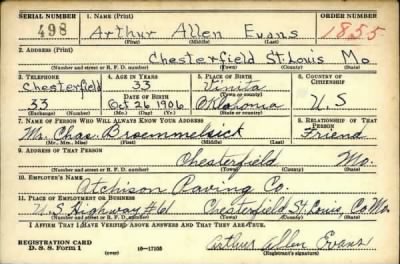 SERIAL NUMBER 1. NAME (Print) ORDER NUMBER
498 Arthur Allen Evans 1855
(First) (Middle) (Last)
2. ADDRESS (Print)
Chesterfield St. Louis Mo.
(Number and street or R. F. D. number) (Town) (County) (State)
3. TELEPHONE 4. AGE IN YEARS 5. PLACE OF BIRTH 6. COUNTRY OF CITIZENSHIP
Chesterfield 33 Vinita
DATE OF BIRTH (Town or county)
33 Oct 26 1906 Oklahoma U. S
(Exchange) (Number) (Mo.) (Day) (Yr.) (State or country)
7. NAME OF PERSON WHO WILL ALWAYS KNOW YOUR ADDRESS 8. RELATIONSHIP OF THAT PERSON
Mr. Chas. Broemmelsick Friend
(Mr., Mrs., Miss) (First) (Middle) (Last)
9. ADDRESS OF THAT PERSON
Chesterfield Mo.
(Number and street or R. F. D. number) (Town) (County) (State)
10. EMPLOYER'S NAME
Atchison Paving Co.
11. PLACE OF EMPLOYMENT OR BUSINESS
U.S Highway #61 Chesterfield St. Louis, Co. Mo.
(Number and street or R. F. D. number) (Town) (County) (State)
I AFFIRM THAT I HAVE VERIFIED ABOVE ANSWERS AND THAT THEY ARE TRUE.
REGISTRATION CARD
D. S. S. Form 1 (over) 16—17105 Arthur Allen Evans
(Registrant's signature)